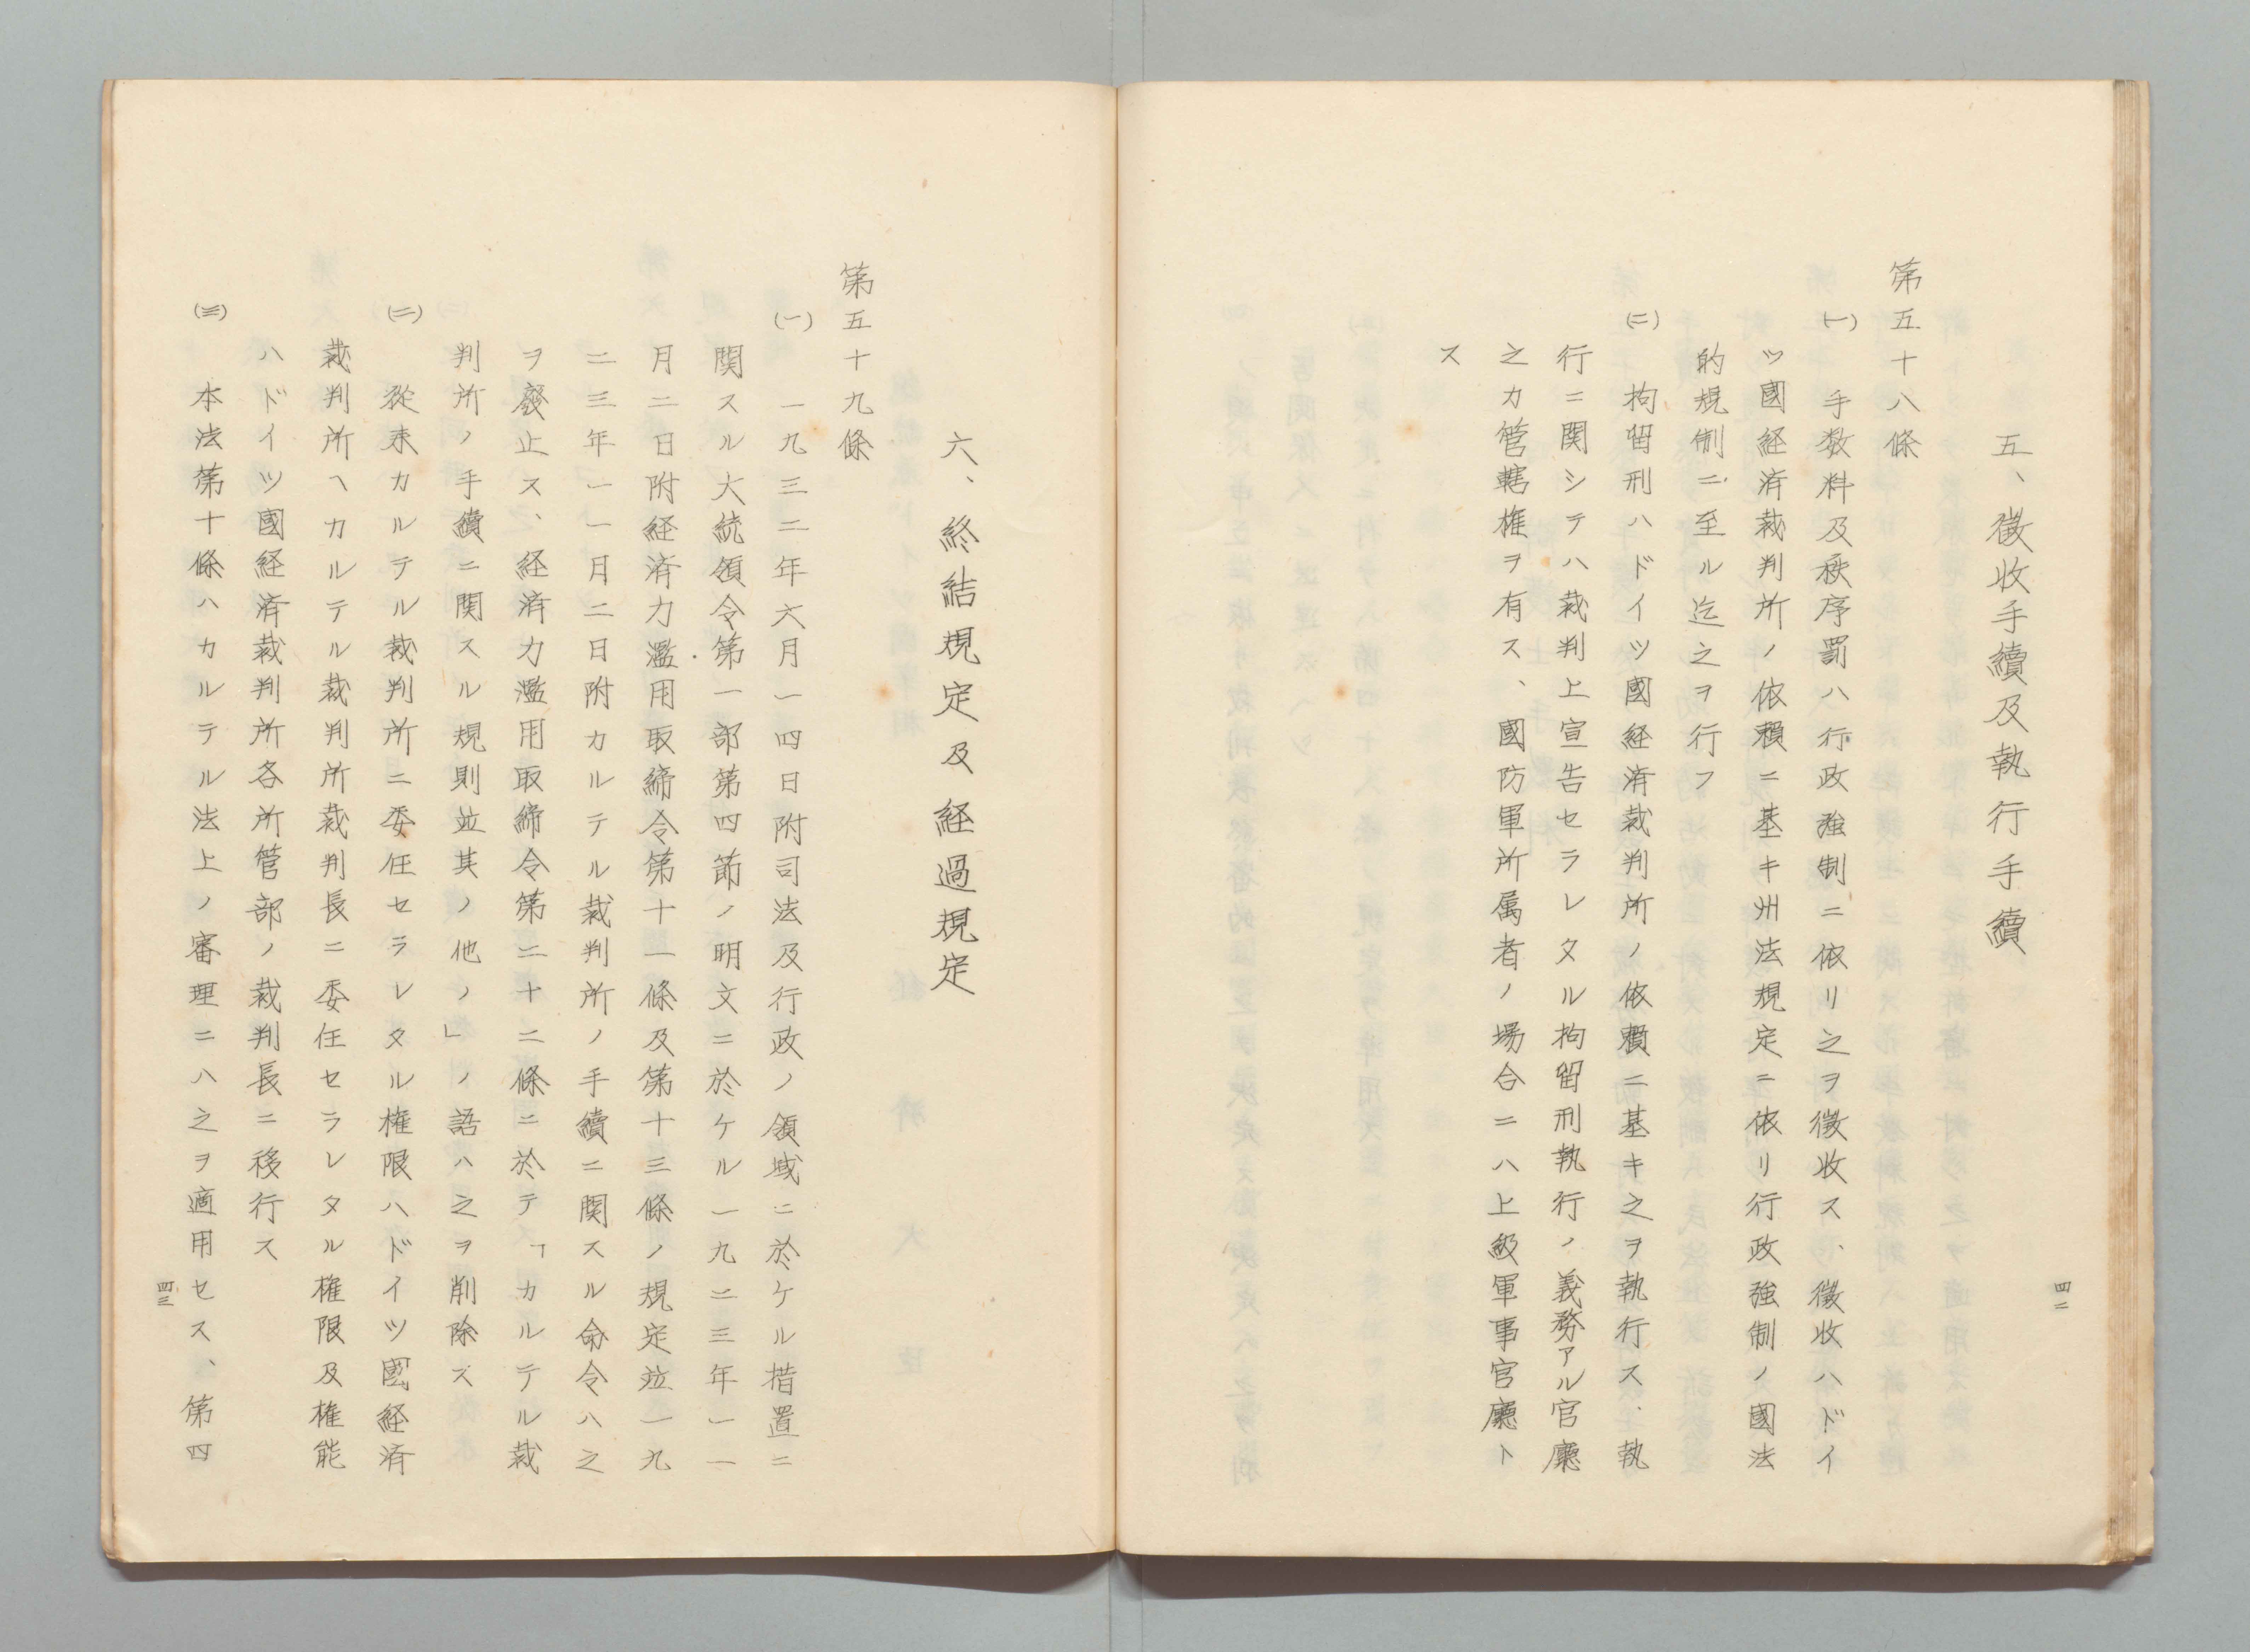 五、徴收手續及執行手續
第五十八條
(一) 手数料及秩序罰ハ行政強制ニ依リ之ヲ徴收ス、徴收ハドイ
ツ國経済裁判所ノ依頼ニ基キ州法規定ニ依リ行政強制ノ國法
的規制ニ至ル迄之ヲ行フ
(二) 拘留刑ハドイツ國経済裁判所ノ依頼ニ基キ之ヲ執行ス、執
行ニ関シテハ裁判上宣告セラレタル拘留刑執行ノ義務アル官廳
之カ管轄権ヲ有ス、國防軍所属者ノ場合ニハ上級軍事官廳ト
ス
四二
六、終結規定及経過規定
第五十九條
(一) 一九三二年六月一四日附司法及行政ノ領域ニ於ケル措置ニ
関スル大統領令第一部第四節ノ明文ニ於ケル一九二三年一一
月二日附経済力濫用取締令第十一條及第十三條ノ規定竝一九
二三年一一月二日附カルテル裁判所ノ手續ニ関スル命令ハ之
ヲ廢止ス、経済力濫用取締令第二十二條ニ於テ「カルテル裁
判所ノ手續ニ関スル規則竝其ノ他ノ」ノ語ハ之ヲ削除ス
(二) 從来カルテル裁判所ニ委任セラレタル権限ハドイツ國経済
裁判所ヘカルテル裁判所裁判長ニ委任セラレタル権限及権能
ハドイツ國経済裁判所各所管部ノ裁判長ニ移行ス
(三) 本法第十條ハカルテル法上ノ審理ニハ之ヲ適用セス、第四
四三